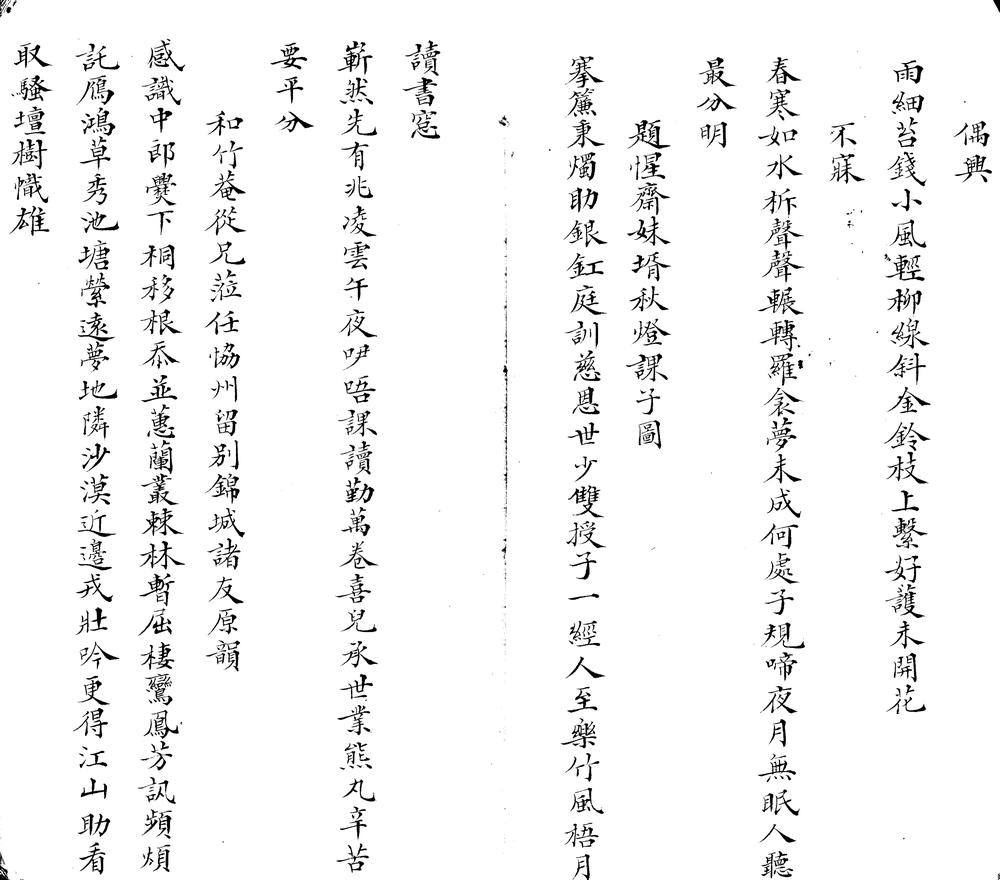 偶興
雨細苔錢小風輕柳線斜金鈴枝上繫好護未開花
不寐
春寒如水柝聲聲輾轉羅衾夢未成何處子規啼夜月無眠人聽
最分明
題惺齋妹壻秋燈課子圖
搴簾秉燭助銀釭庭訓慈恩世少雙授子一經人至樂竹風梧月
讀書窓
嶄然先有兆凌雲午夜咿唔課讀勤萬卷喜兒承世業熊丸辛苦
要平分
和竹菴從兄蒞任恊州留别錦城諸友原韻
感識中郎爨下桐移根忝並蕙蘭叢棘林暫屈棲鸞鳳芳訊頻煩
託鴈鴻草秀池塘縈遠夢地隣沙漠近邊戎壯吟更得江山助看
取騷壇樹幟雄